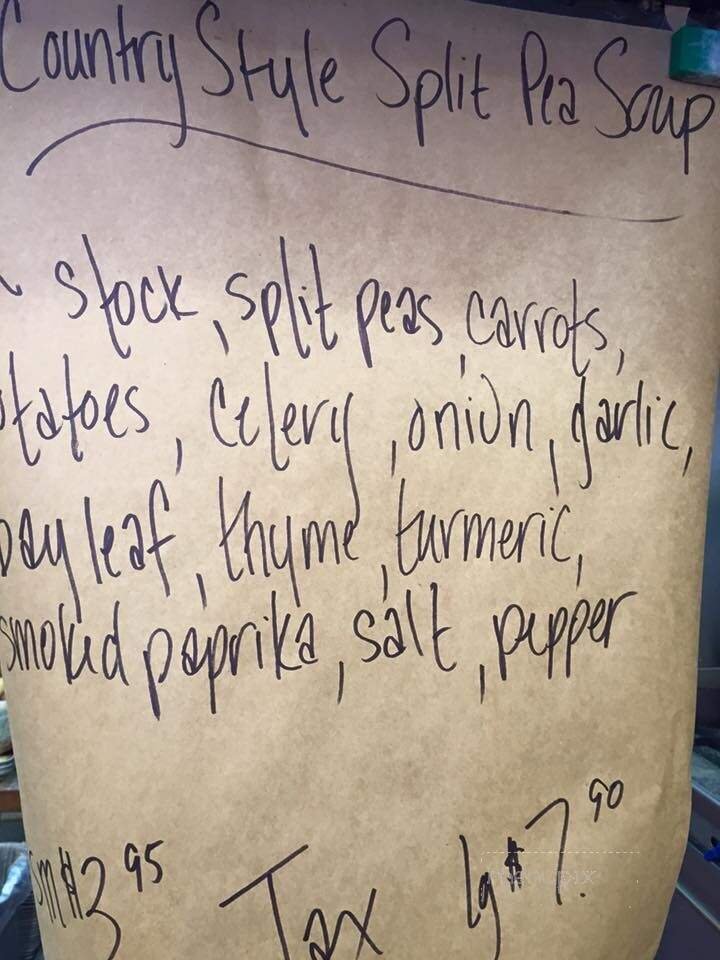 Country Style Split Pea Soup
stock, split peas, carrots,
otatoes, Celery, onion, garlic,
bay leaf, thyme, turmeric,
smoked paprika, salt, pepper
sm $3.95 Tax lg $7.90